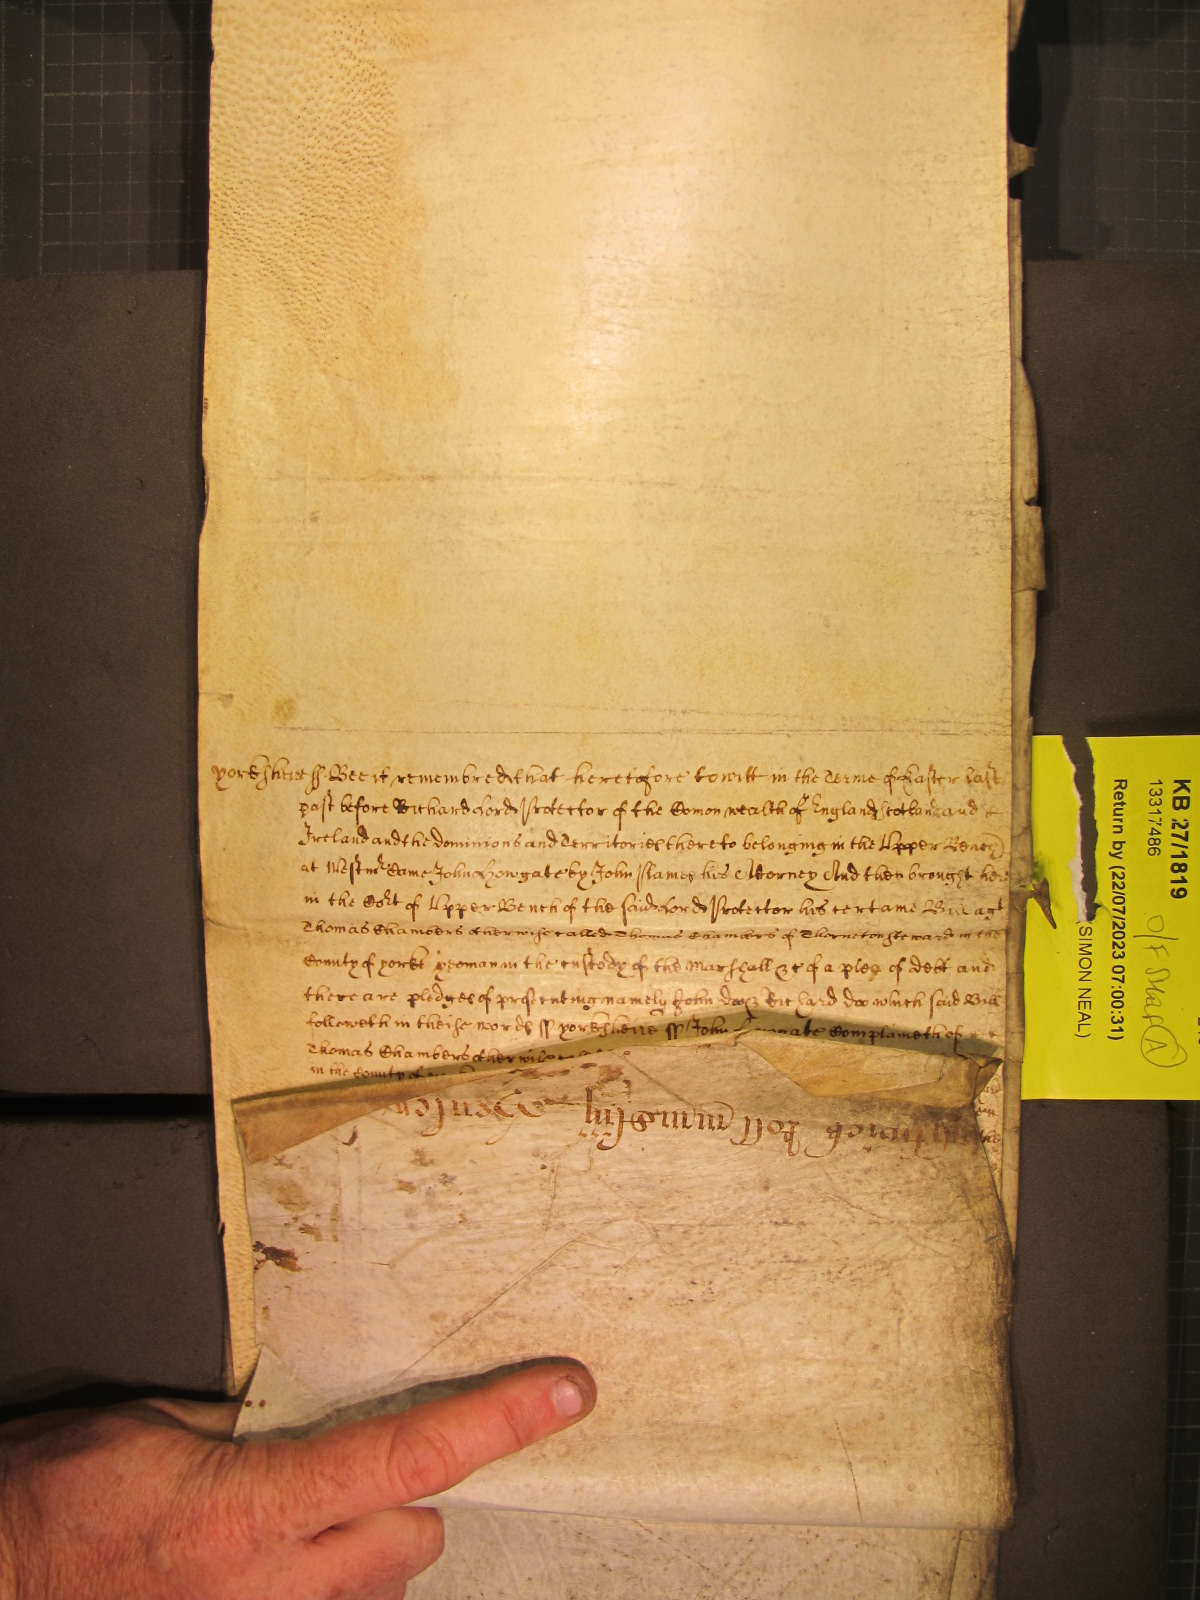 yorksheire ss Bee it remembred that heretofore to witt in the Terme of Easter last
past before Richard Lord Protector of the Comonwealth of England Scotland and
Ireland and the dominions and Territories thereto belonging in the Upper Bench
at Westmr Came John Howgate by John Flames his Attorney And then brought here
in the Cort of Upper Bench of the said Lord Protector his certaine Bill agt
Thomas Chambers otherwise called Thomas Chambers of Thorneton steward in the
County of yorke yeoman in the custody of the Marshall &c of a plea of debt and
there are pledges of prosecuting namely John doo & Richard doo which said Bill
followeth in theise words ss yorksheire ss John Complaineth of
Thomas Chambers otherwise
in the County of
KB 27/1819
13317486
Return by (22/07/2023 07:00:31)
(SIMON NEAL)
O/F Staf A